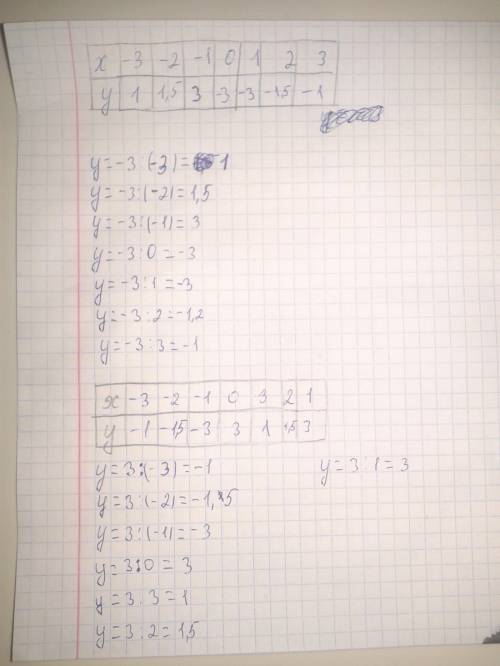 x -3 -2 -1 0 1 2 3
y 1 1,5 3 -3 -3 -1,5 -1
y=-3:(-3)=1
y=-3:(-2)=1,5
y=-3:(-1)=3
y=-3:0=-3
y=-3:1=-3
y=-3:2=-1,2
y=-3:3=-1
x -3 -2 -1 0 3 2 1
y -1 -1,5 -3 3 1 1,5 3
y=3:(-3)=-1
y=3:1=3
y=3:(-2)=-1,5
y=3:(-1)=-3
y=3:0=3
y=3:3=1
y=3:2=1,5